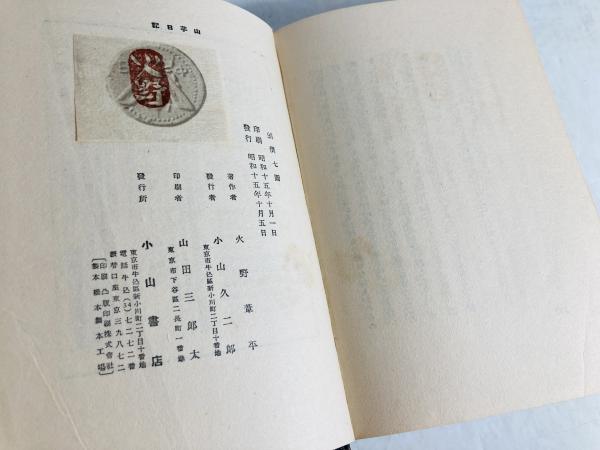 山芋日記
火野
定價七圓
印刷 昭和十五年十月一日
發行 昭和十五年十月五日
著作者 火野葦平
發行者 小山久二郎
東京市牛込區新小川町二丁目十番地
印刷者 山田三郎太
東京市下谷區二長町一番地
發行所 小山書店
東京市牛込區新小川町二丁目十番地
電話牛込(34)七二七二番
振替口座東京三九八七二
印刷 凸版印刷株式會社
製本 橋本製本工場